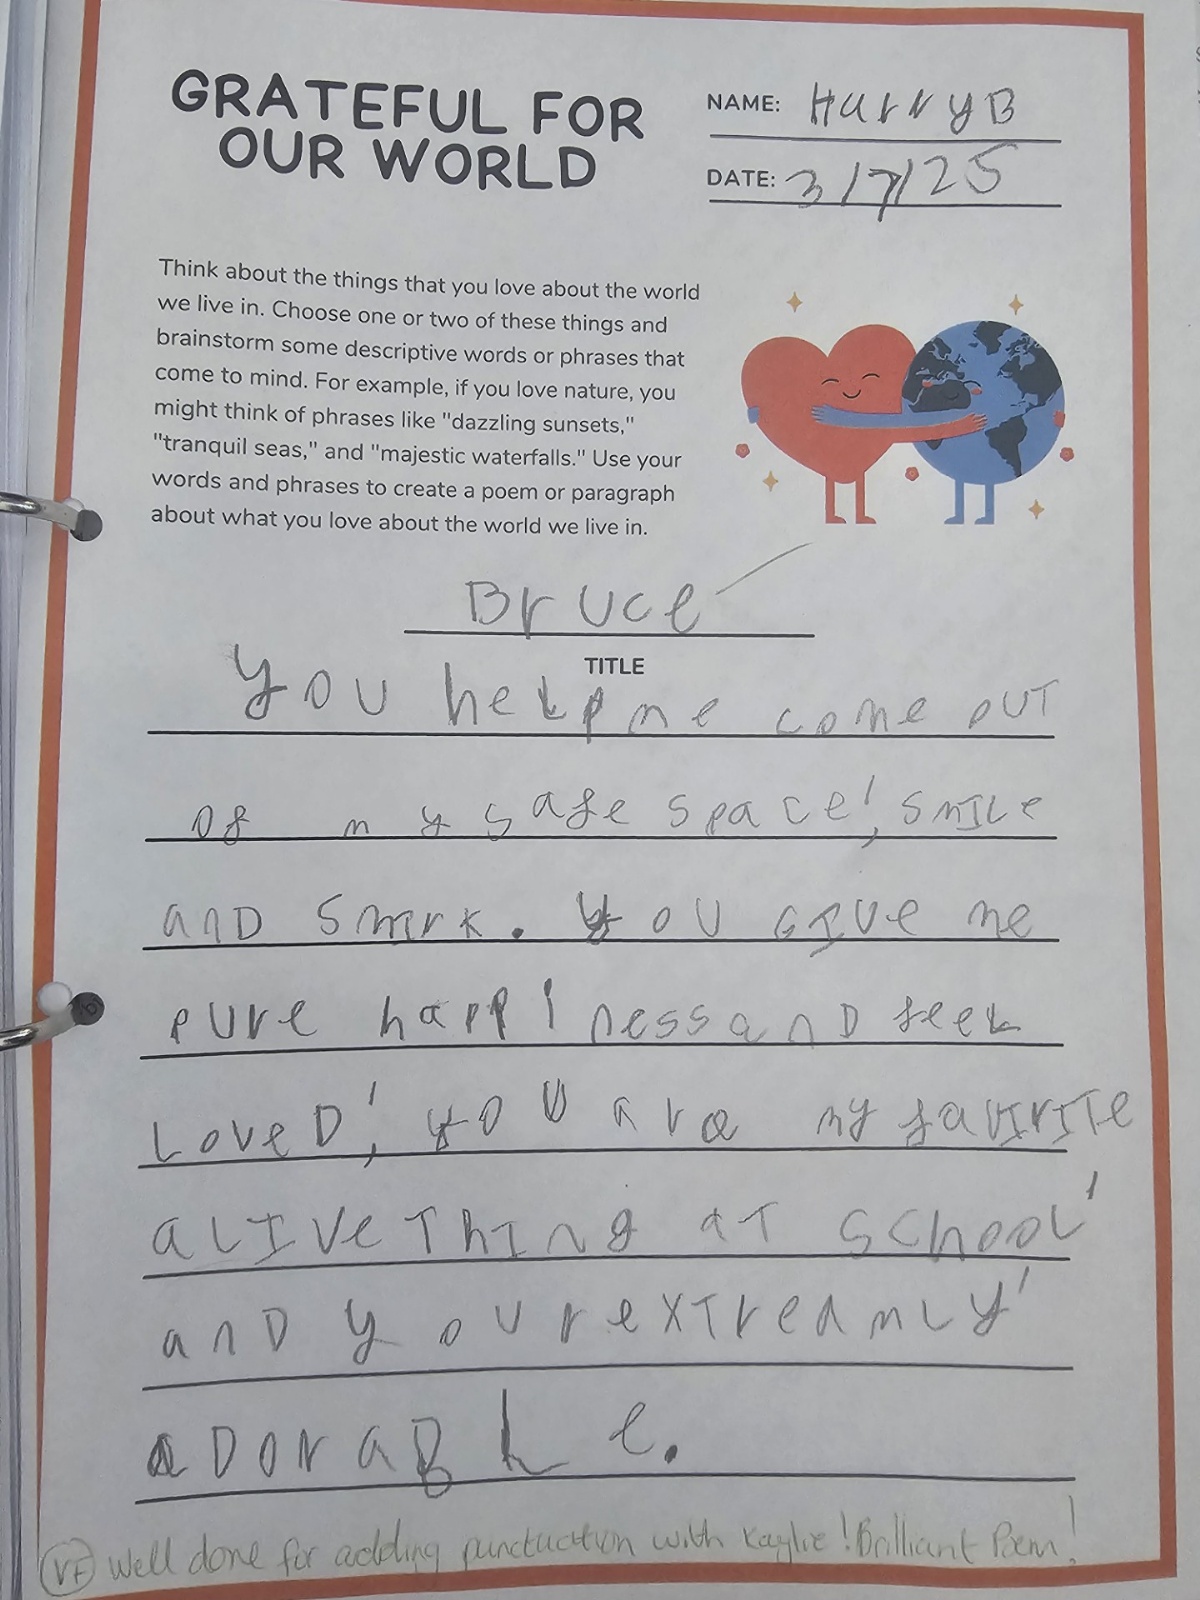 GRATEFUL FOR
OUR WORLD
NAME: Harry B
DATE: 3/7/25
Think about the things that you love about the world
we live in. Choose one or two of these things and
brainstorm some descriptive words or phrases that
come to mind. For example, if you love nature, you
might think of phrases like "dazzling sunsets,"
"tranquil seas," and "majestic waterfalls." Use your
words and phrases to create a poem or paragraph
about what you love about the world we live in.
Bruce
TITLE
You help me come ouT
of my safe space!, smILe
anD smIrk. You GIve me
pure happiness anD feeL
LoveD!, you are my favIrITe
aLIve ThIng aT schooL!
anD your exTreamLy!
aDoraBLe.
VF Well done for adding punctuation with Kaylie! Brilliant Poem!